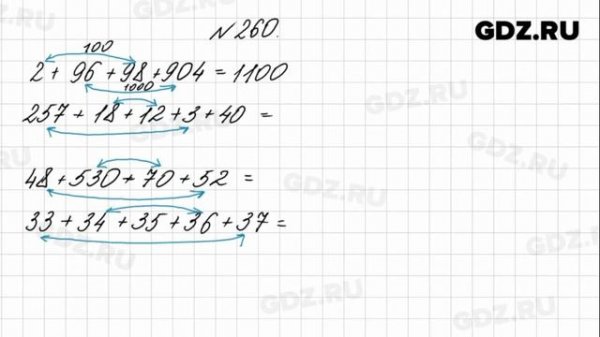 №260.
GDZ.RU
100
2 + 96 + 98 + 904 = 1100
1000
257 + 18 + 12 + 3 + 40 =
48 + 530 + 70 + 52 =
33 + 34 + 35 + 36 + 37 =
GDZ.RU
GDZ.RU
GDZ.RU
GDZ.RU
GDZ.RU
GDZ.RU
GDZ.RU